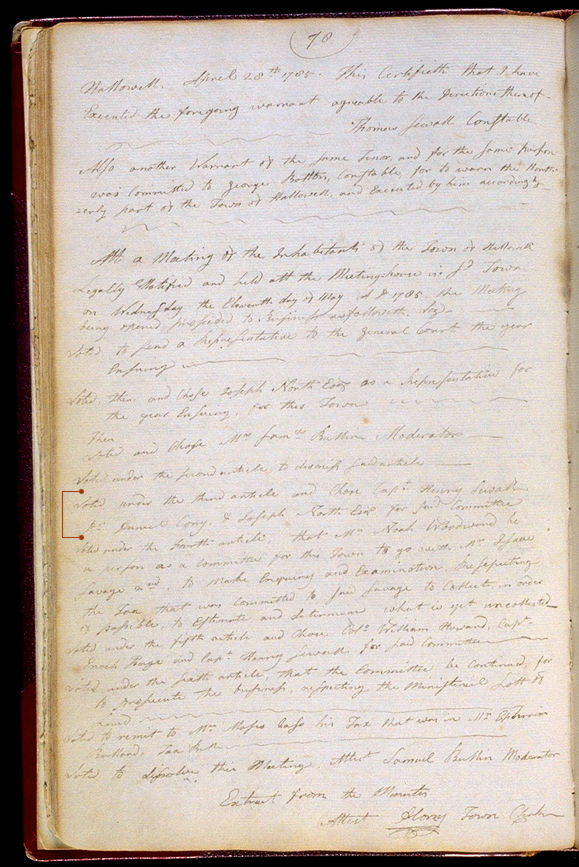 78
Hallowell. April 28th 1785. This Certifieth that I have
Executed the foregoing warrant agreable to the Directions thereof
Thomas Sewall Constable
Also another Warrant of the same Tenor, and for the same purpose
was Committed to George Constable, for to warn the
part of the Town of Hallowell, and Executed by him accordingly
Att a Meeting of the Inhabitants of the Town of Hallowell
Legally Notified and held att the Meeting-house in sd Town
on Wednesday the Eleventh day of May A D 1785. the Meeting
being opened proceeded to Business as followeth. Viz.
Voted to send a Representative to the General Court the year
Ensuing
Voted then and Chose Joseph North Esqr as a Representative for
the year Ensuing, for this Town
Then
Voted and Chose Mr Samll Bullin Moderator
Voted under the second article to dismiss said article
Voted under the third article and Chose Capt. Henry Sewall
Dr Daniel Cony, & Joseph North Esqr for said Committee
Voted under the fourth article, that Mr Noah Woodward be
a person as a Committee for this Town to go with Mr Isaac
Savage 2nd, to Make Enquiry and Examination Respecting
the Tax that was Committed to said Savage to Collect, in order
if possible, to Estimate and determine what is yet uncollected
Voted under the fifth article and Chose Colo. William Howard, Capt.
Enoch Page and Capt. Henry Sewall for said Committee
Voted under the sixth article, that the Committee be Continued, for
to prosecute the business, respecting the Ministerial Lott of
Land
Voted to remit to Mr. Moses his Tax that was in Mr. Ephraim
Tax
Voted to dissolve this Meeting. Attest Samuel Bullin Moderator
Extract from the Minutes
Attest Town Clerk